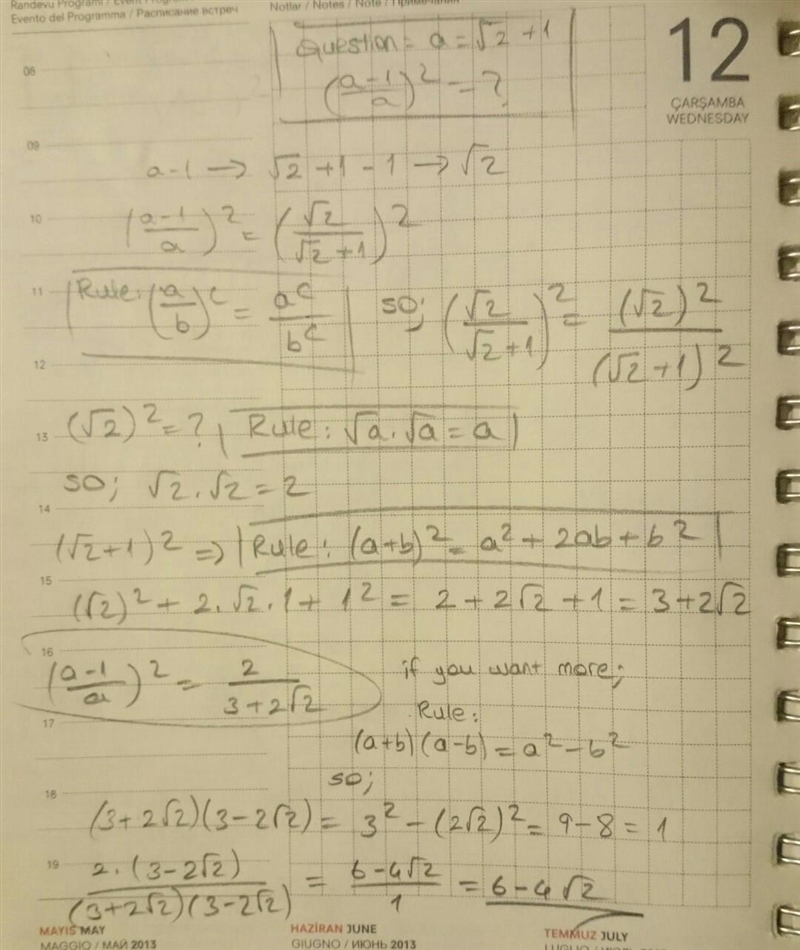 Randevu Programı / Event Prog
Evento del Programma / Расписание встреч
Notlar / Notes / Note / Примечания
12
ÇARŞAMBA
WEDNESDAY
Question = a = √2 + 1
(a-1/a)² = ?
08
09
a-1 → √2 + 1 - 1 → √2
10
(a-1/a)² = (√2/√2+1)²
11
Rule: (a/b)^c = a^c/b^c so; (√2/√2+1)² = (√2)²/(√2+1)²
12
13
(√2)² = ? Rule: √a . √a = a
so; √2 . √2 = 2
14
(√2+1)² ⇒ Rule: (a+b)² = a² + 2ab + b²
15
(√2)² + 2.√2.1 + 1² = 2 + 2√2 + 1 = 3+2√2
16
(a-1/a)² = 2/3+2√2
if you want more;
17
Rule:
(a+b)(a-b) = a² - b²
so;
18
(3+2√2)(3-2√2) = 3² - (2√2)² = 9-8 = 1
19
2.(3-2√2)/(3+2√2)(3-2√2) = 6-4√2/1 = 6-4√2
MAYIS MAY
MAGGIO / МАЙ 2013
HAZİRAN JUNE
GIUGNO / ИЮНЬ 2013
TEMMUZ JULY